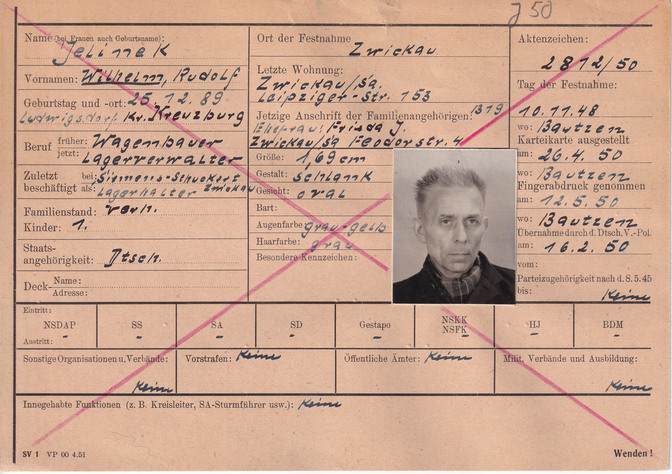 J 50
Name (bei Frauen auch Geburtsname): Jelinek
Vornamen: Wilhelm, Rudolf
Geburtstag und -ort: 25.12.89
Ludwigsdorf Kr. Kreuzburg
Beruf früher: Wagenbauer
jetzt: Lagerverwalter
Zuletzt bei: Siemens-Schuckert
beschäftigt als: Lagerhalter Zwickau
Familienstand: verh.
Kinder: 1.
Staats-
angehörigkeit: Dtsch.
Deck- Name:
Adresse:
Ort der Festnahme
Zwickau
Letzte Wohnung:
Zwickau/Sa.
Leipziger-Str. 153
Jetzige Anschrift der Familienangehörigen: B 19
Ehefrau: Frieda J.
Zwickau/Sa Feodorstr. 4
Größe: 1,69 cm
Gestalt: schlank
Gesicht: oval
Bart:
Augenfarbe: grau-gelb
Haarfarbe: grau
Besondere Kennzeichen:
Aktenzeichen:
2812/50
Tag der Festnahme:
10.11.48
wo: Bautzen
Karteikarte ausgestellt
am: 26.4.50
wo: Bautzen
Fingerabdruck genommen
am: 12.5.50
wo: Bautzen
Übernahme durch d. Dtsch. V.-Pol.
am: 16.2.50
vom:
Parteizugehörigkeit nach d. 8.5.45
bis: keine
Eintritt:
NSDAP SS SA SD Gestapo NSKK NSFK HJ BDM
- - - - - - - -
Austritt:
Sonstige Organisationen u. Verbände: keine
Vorstrafen: keine
Öffentliche Ämter: keine
Milit. Verbände und Ausbildung: keine
Innegehabte Funktionen (z. B. Kreisleiter, SA-Sturmführer usw.): keine
SV 1 VP 00 4.51
Wenden!